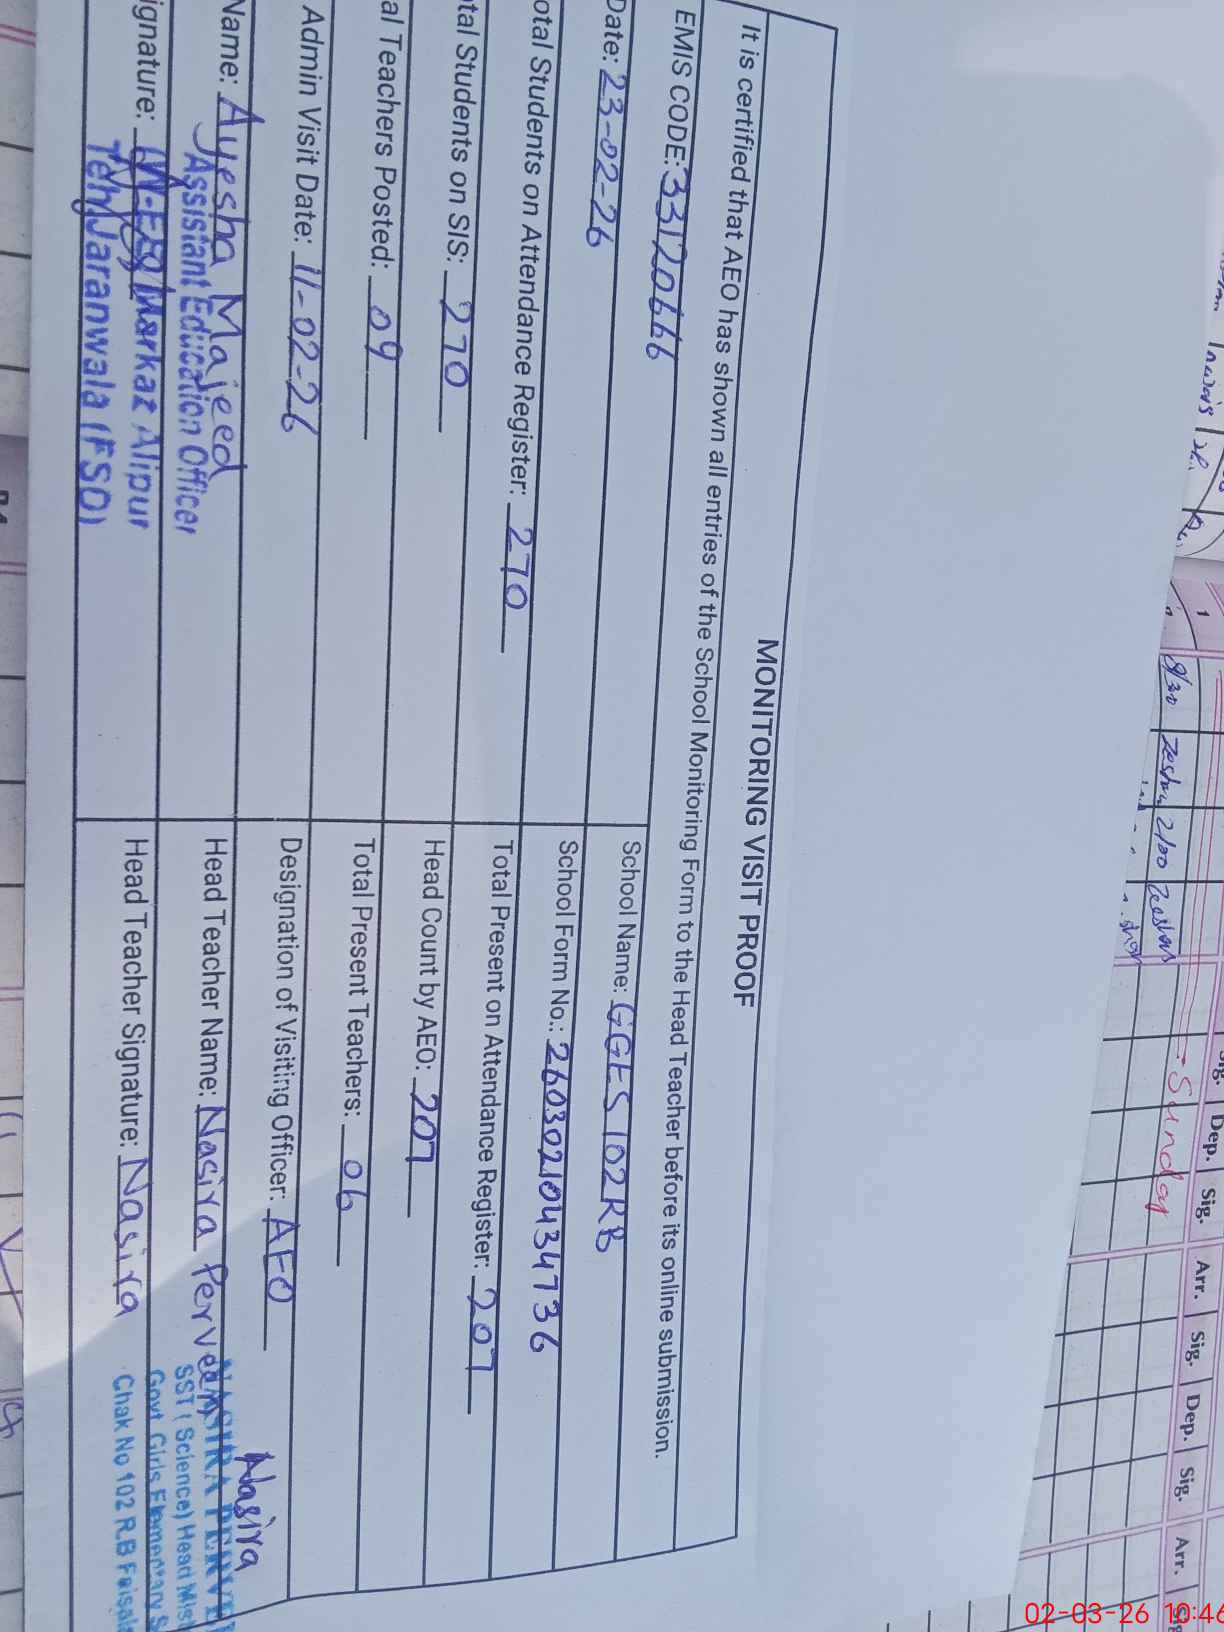 MONITORING VISIT PROOF
It is certified that AEO has shown all entries of the School Monitoring Form to the Head Teacher before its online submission.
EMIS CODE: 33120666
School Name: GGES 102RB
Date: 23-02-26
School Form No.: 26030210434736
otal Students on Attendance Register: 270
Total Present on Attendance Register: 207
tal Students on SIS: 270
Head Count by AEO: 207
al Teachers Posted: 09
Total Present Teachers: 06
Admin Visit Date: 11-02-26
Designation of Visiting Officer: AEO
Name: Ayesha Majeed
Assistant Education Officer
Head Teacher Name: Nasira Perveen
Nasira
NASIRA PERVE
SST (Science) Head Mist
Govt Girls Elementary S
Chak No 102 R.B Faisala
ignature:
(W-EE) Markaz Alipur
Teh/Jaranwala (FSD)
Head Teacher Signature: Nasira
1
8/30 Zeshan 2/00 Zeeshan
Sunday
Dep. Sig. Arr. Sig. Dep. Sig. Arr.
02-03-26 10:46